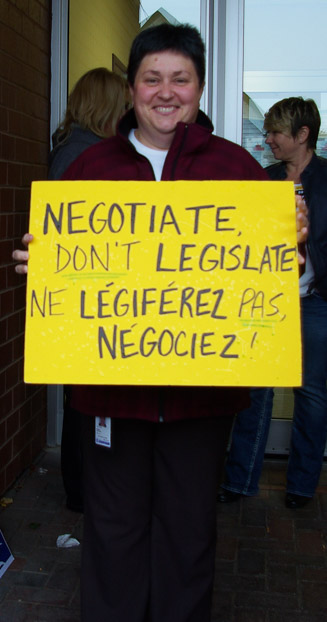 NEGOTIATE,
DON'T LEGISLATE
NE LÉGIFÉREZ PAS,
NÉGOCIEZ!